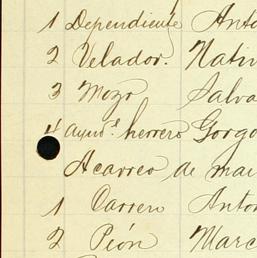 1 Dependiente Anto
2 Velador. Nativ
3 Mozo Salva
4 ayud.e herrero Gorgo
Acarreo de mai
1 Carrero Anton
2 Peón Marc